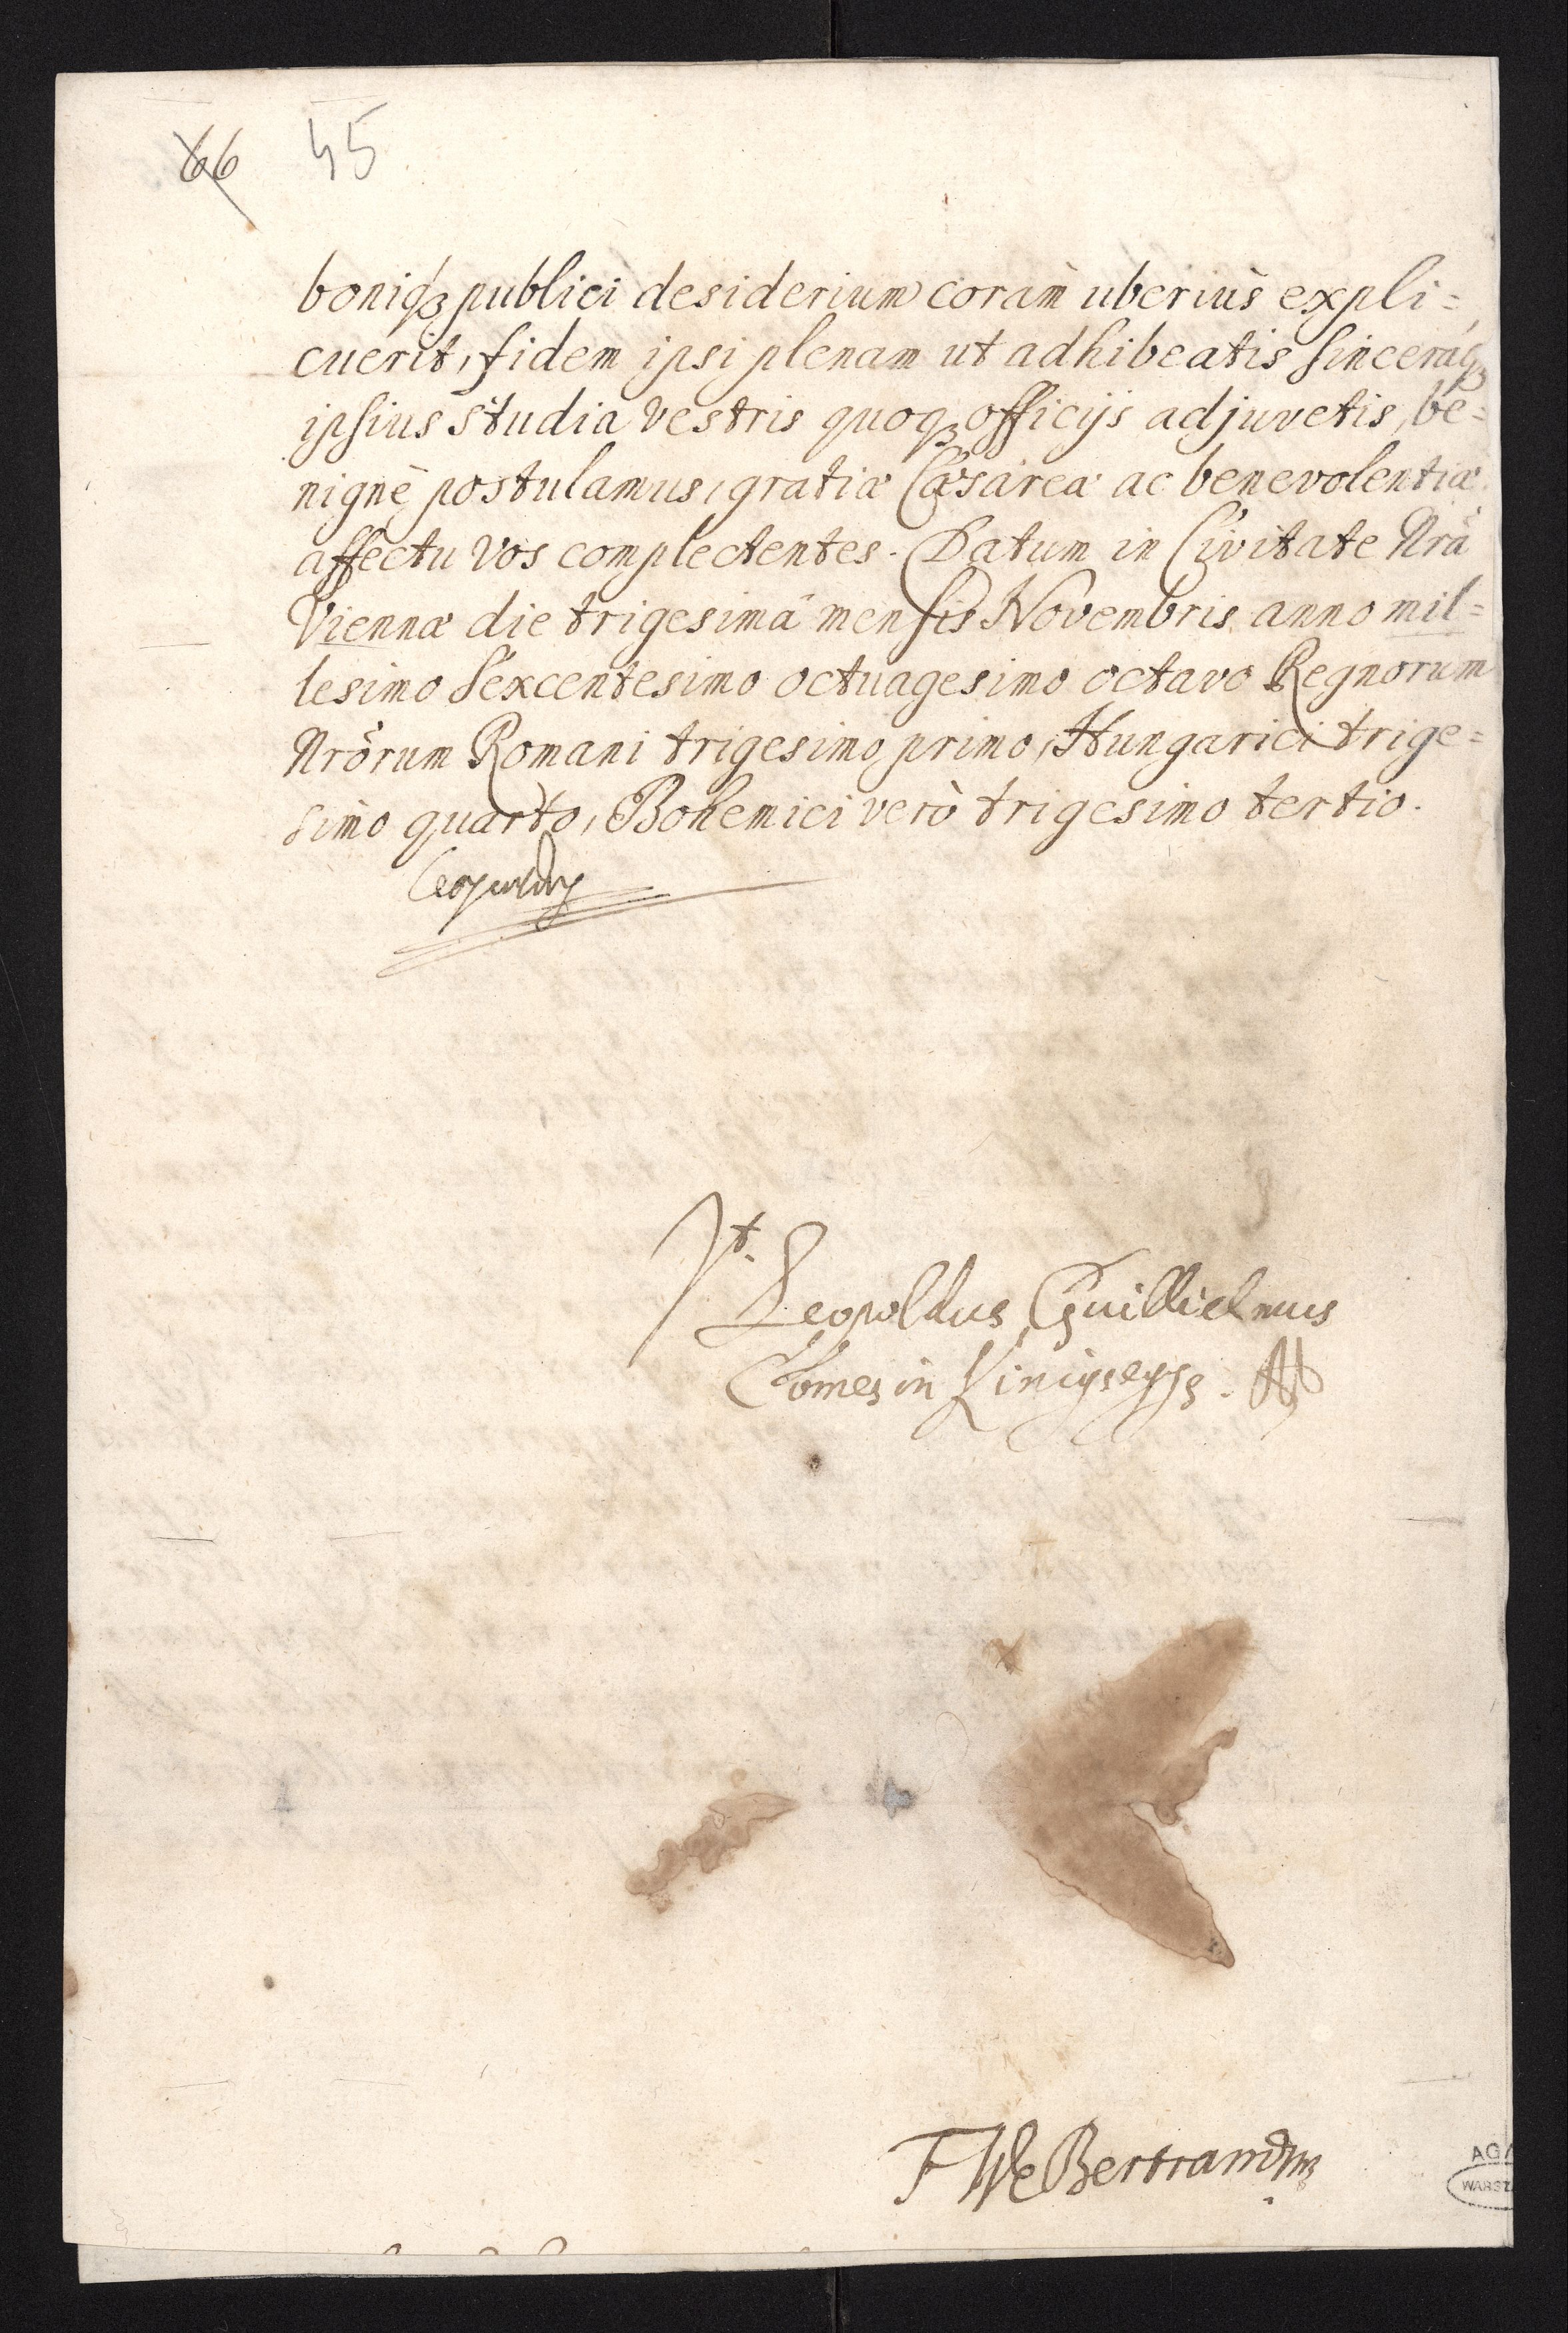 66 45
boniqꝫ publici desiderium coràm uberiùs expli=
cuerit, fidem ipsi plenam ut adhibeatis sinceráqꝫ
ipsius studia vestris quoqꝫ officijs adjuvetis, be=
nignè postulamus, gratiæ Cæsareæ ac benevolentiæ
affectu vos complectentes. Datum in Civitate Nrã
Viennæ die trigesimâ mensis Novembris anno mil=
lesimo Sexcentesimo octuagesimo octavo Regnorum
Nrõrum Romani trigesimo primo, Hungarici trige=
simo quarto, Bohemici verò trigesimo tertio.
Leopoldus
Vt. Leopoldus Guillielmus
Comes in Kinigsegg.
F W Bertramdus
AGA
WARSZA